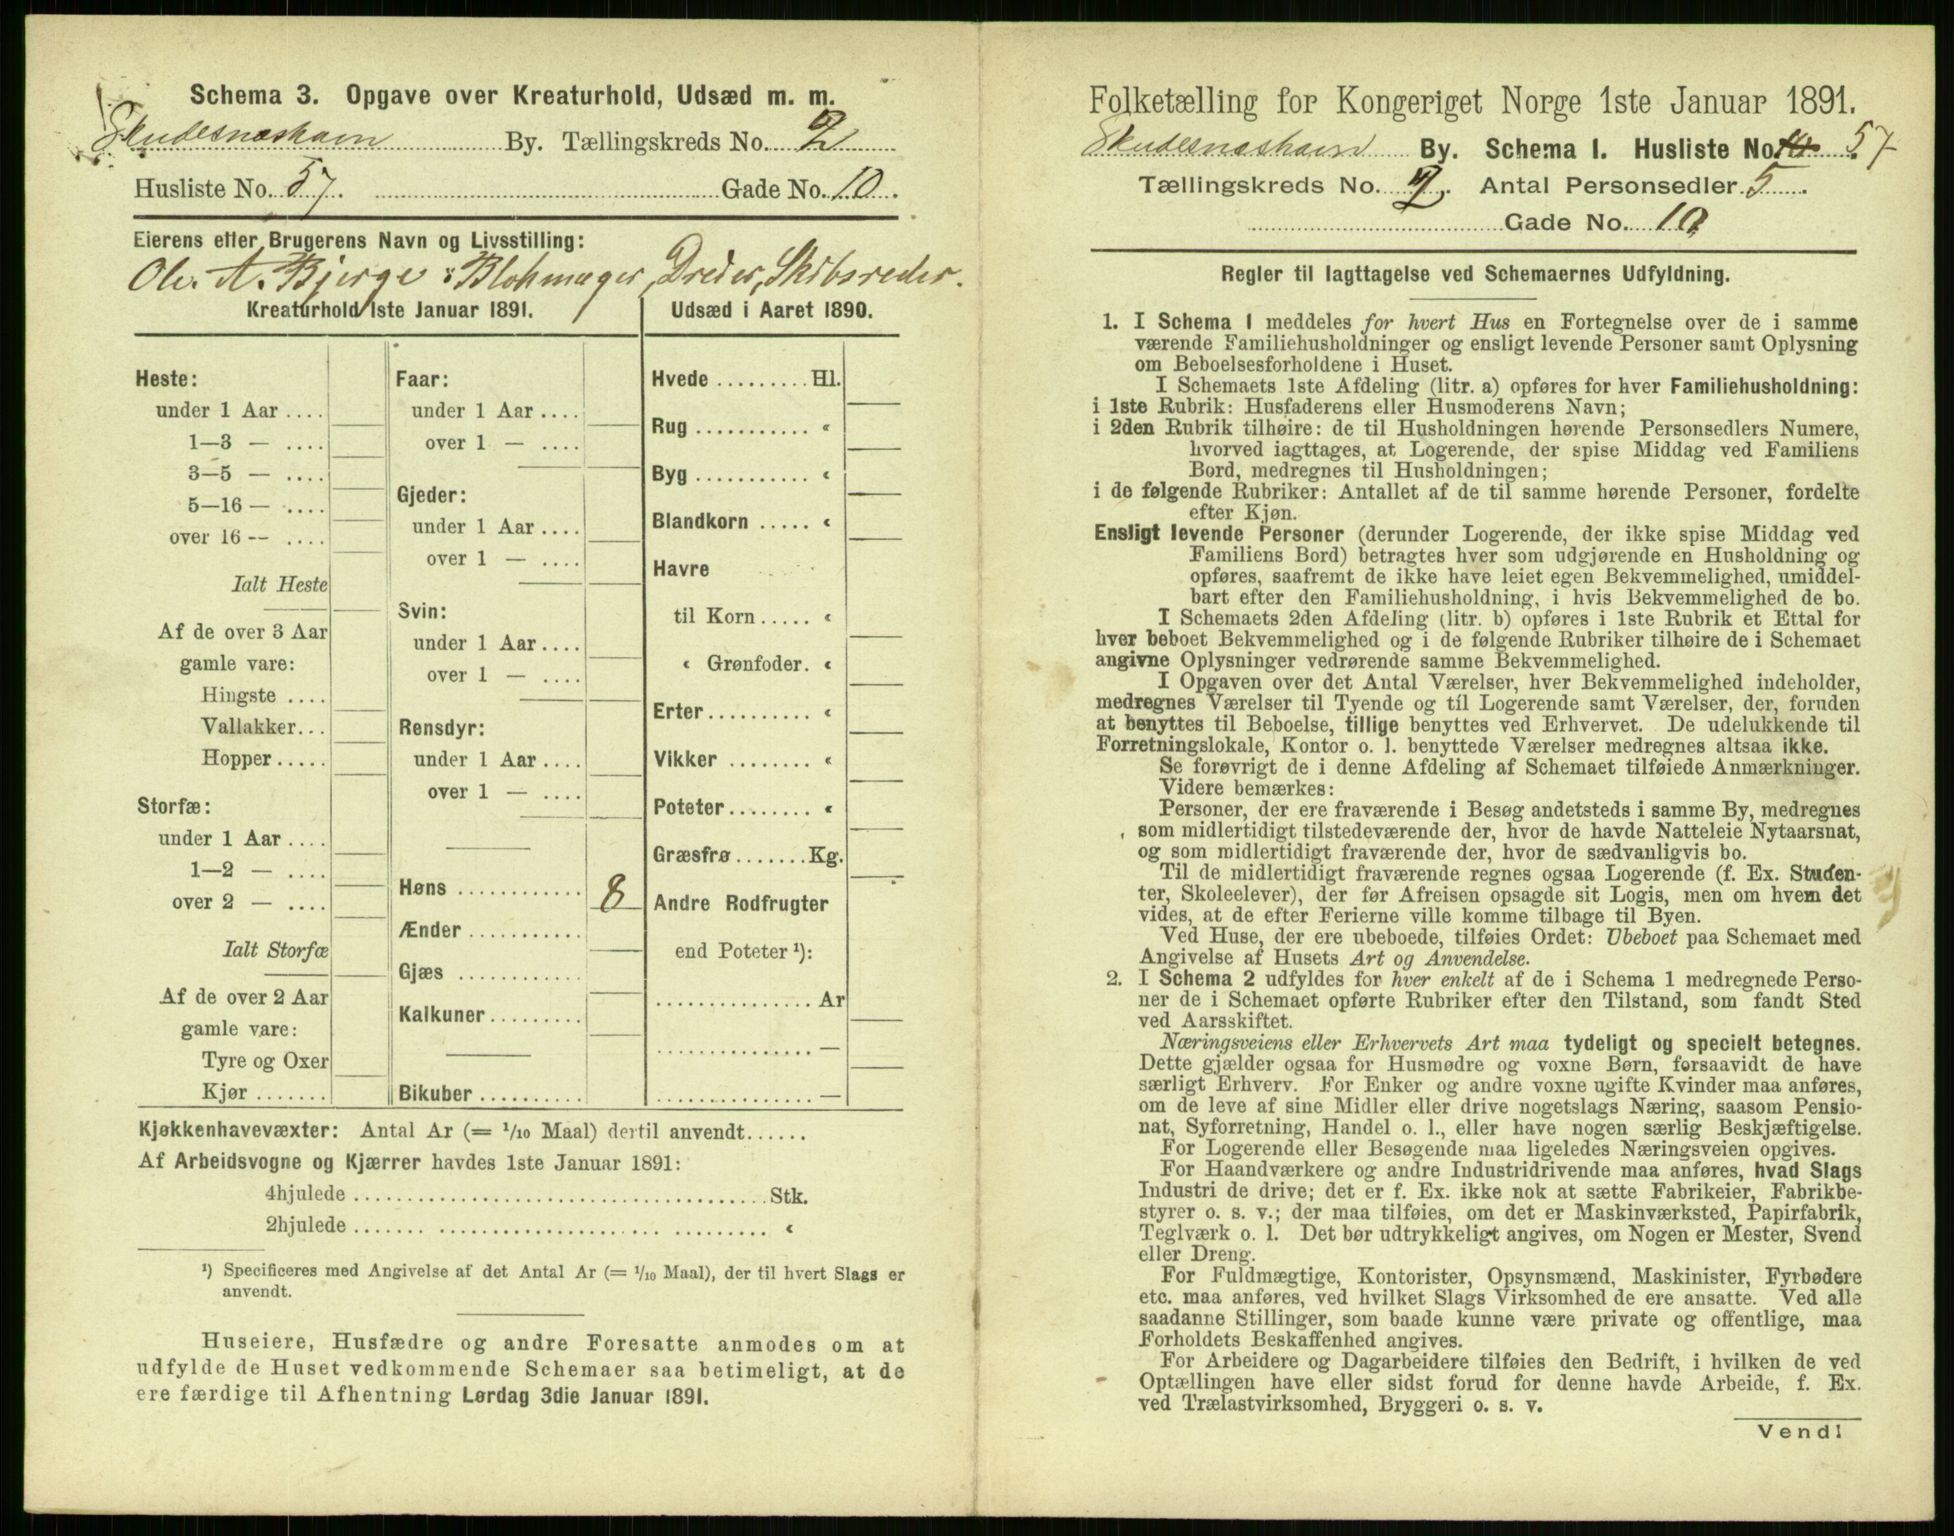 Schema 3. Opgave over Kreaturhold, Udsæd m. m.
Skudesnæshavn By. Tællingskreds No. 2
Husliste No. 57. Gade No. 10.
Eierens eller Brugerens Navn og Livsstilling:
Ole. A. Bjerge : Blokmager, Dreier, Skibsreder.
Kreaturhold 1ste Januar 1891.
Heste:
under 1 Aar ....
1—3 — ....
3—5 — ....
5—16 — ....
over 16 — ....
Ialt Heste
Af de over 3 Aar
gamle vare:
Hingste ....
Vallakker...
Hopper .....
Storfæ:
under 1 Aar ....
1—2 — ....
over 2 — ....
Ialt Storfæ
Af de over 2 Aar
gamle vare:
Tyre og Oxer
Kjør .......
Faar:
under 1 Aar ....
over 1 — ....
Gjeder:
under 1 Aar ....
over 1 — ....
Svin:
under 1 Aar ....
over 1 — ....
Rensdyr:
under 1 Aar ....
over 1 — ....
Høns ............ 8
Ænder ...........
Gjæs ............
Kalkuner.........
Bikuber ..........
Udsæd i Aaret 1890.
Hvede ........ Hl.
Rug .......... «
Byg .......... «
Blandkorn ..... «
Havre
til Korn ..... «
« Grønfoder. «
Erter ......... «
Vikker ........ «
Poteter ........ «
Græsfrø ....... Kg.
Andre Rodfrugter
end Poteter ¹):
............... Ar
............... —
............... —
Kjøkkenhavevæxter: Antal Ar (= 1/10 Maal) dertil anvendt......
Af Arbeidsvogne og Kjærrer havdes 1ste Januar 1891:
4hjulede ........................................ Stk.
2hjulede ........................................ «
¹) Specificeres med Angivelse af det Antal Ar (= 1/10 Maal), der til hvert Slags er
anvendt.
Huseiere, Husfædre og andre Foresatte anmodes om at
udfylde de Huset vedkommende Schemaer saa betimeligt, at de
ere færdige til Afhentning Lørdag 3die Januar 1891.
Folketælling for Kongeriget Norge 1ste Januar 1891.
Skudesnæshavn By. Schema I. Husliste No. 57
Tællingskreds No. 2. Antal Personsedler 5
Gade No. 10
Regler til Iagttagelse ved Schemaernes Udfyldning.
1. I Schema I meddeles for hvert Hus en Fortegnelse over de i samme
værende Familiehusholdninger og ensligt levende Personer samt Oplysning
om Beboelsesforholdene i Huset.
I Schemaets 1ste Afdeling (litr. a) opføres for hver Familiehusholdning:
i 1ste Rubrik: Husfaderens eller Husmoderens Navn;
i 2den Rubrik tilhøire: de til Husholdningen hørende Personsedlers Numere,
hvorved iagttages, at Logerende, der spise Middag ved Familiens
Bord, medregnes til Husholdningen;
i de følgende Rubriker: Antallet af de til samme hørende Personer, fordelte
efter Kjøn.
Ensligt levende Personer (derunder Logerende, der ikke spise Middag ved
Familiens Bord) betragtes hver som udgjørende en Husholdning og
opføres, saafremt de ikke have leiet egen Bekvemmelighed, umiddel-
bart efter den Familiehusholdning, i hvis Bekvemmelighed de bo.
I Schemaets 2den Afdeling (litr. b) opføres i 1ste Rubrik et Ettal for
hver beboet Bekvemmelighed og i de følgende Rubriker tilhøire de i Schemaet
angivne Oplysninger vedrørende samme Bekvemmelighed.
I Opgaven over det Antal Værelser, hver Bekvemmelighed indeholder,
medregnes Værelser til Tyende og til Logerende samt Værelser, der, foruden
at benyttes til Beboelse, tillige benyttes ved Erhvervet. De udelukkende til
Forretningslokale, Kontor o. l. benyttede Værelser medregnes altsaa ikke.
Se forøvrigt de i denne Afdeling af Schemaet tilføiede Anmærkninger.
Videre bemærkes:
Personer, der ere fraværende i Besøg andetsteds i samme By, medregnes
som midlertidigt tilstedeværende der, hvor de havde Natteleie Nytaarsnat,
og som midlertidigt fraværende der, hvor de sædvanligvis bo.
Til de midlertidigt fraværende regnes ogsaa Logerende (f. Ex. Studen-
ter, Skoleelever), der før Afreisen opsagde sit Logis, men om hvem det
vides, at de efter Ferierne ville komme tilbage til Byen.
Ved Huse, der ere ubeboede, tilføies Ordet: Ubeboet paa Schemaet med
Angivelse af Husets Art og Anvendelse.
2. I Schema 2 udfyldes for hver enkelt af de i Schema 1 medregnede Perso-
ner de i Schemaet opførte Rubriker efter den Tilstand, som fandt Sted
ved Aarsskiftet.
Næringsveiens eller Erhvervets Art maa tydeligt og specielt betegnes.
Dette gjælder ogsaa for Husmødre og voxne Børn, forsaavidt de have
særligt Erhverv. For Enker og andre voxne ugifte Kvinder maa anføres,
om de leve af sine Midler eller drive nogetslags Næring, saasom Pensio-
nat, Syforretning, Handel o. l., eller have nogen særlig Beskjæftigelse.
For Logerende eller Besøgende maa ligeledes Næringsveien opgives.
For Haandværkere og andre Industridrivende maa anføres, hvad Slags
Industri de drive; det er f. Ex. ikke nok at sætte Fabrikeier, Fabrikbe-
styrer o. s. v.; der maa tilføies, om det er Maskinværksted, Papirfabrik,
Teglværk o. l. Det bør udtrykkeligt angives, om Nogen er Mester, Svend
eller Dreng.
For Fuldmægtige, Kontorister, Opsynsmænd, Maskinister, Fyrbødere
etc. maa anføres, ved hvilket Slags Virksomhed de ere ansatte. Ved alle
saadanne Stillinger, som baade kunne være private og offentlige, maa
Forholdets Beskaffenhed angives.
For Arbeidere og Dagarbeidere tilføies den Bedrift, i hvilken de ved
Optællingen have eller sidst forud for denne havde Arbeide, f. Ex.
ved Trælastvirksomhed, Bryggeri o. s. v.
Vend!